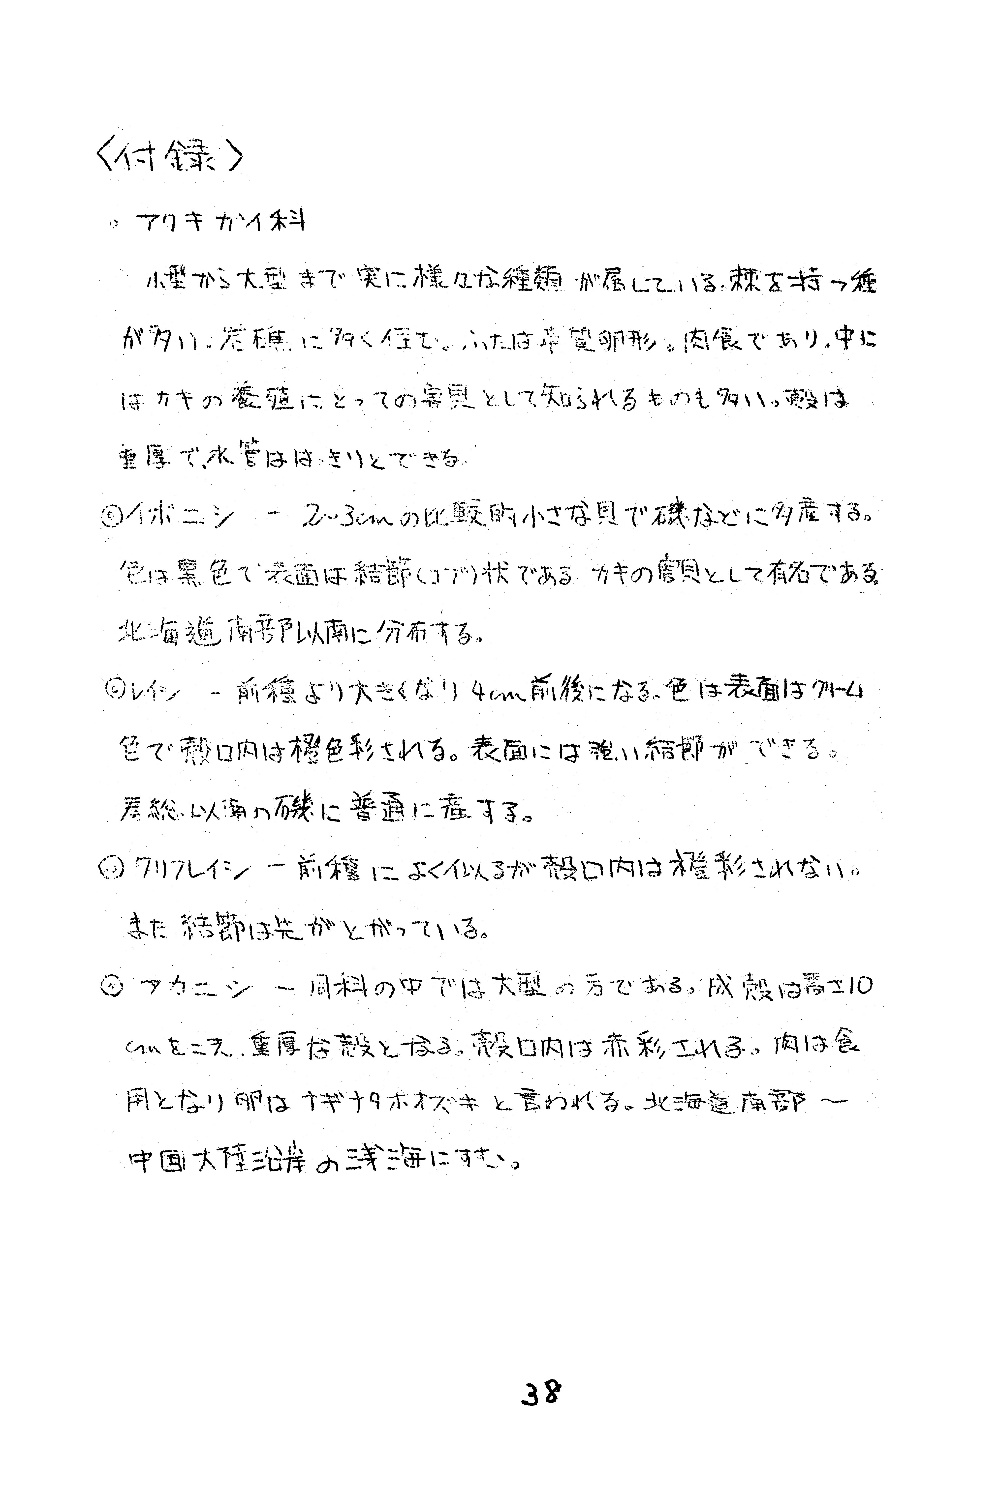 〈付録〉
。アクキガイ科
小型から大型まで実に様々な種類が属している。棘を持つ種
が多い。岩礁に多く住む。ふたは革質卵形。肉食であり、中に
はカキの養殖にとっての害貝として知られるものも多い。殻は
重厚で、水管ははっきりとできる。
◎イボニシ － 2~3cmの比較的小さな貝で磯などに多産する。
色は黒色で表面は結節(コブ)状である。カキの害貝として有名である。
北海道南部以南に分布する。
◎レイシ － 前種より大きくなり4cm前後になる。色は表面はクリーム
色で殻口内は橙色彩される。表面には強い結節ができる。
房総以南の磯に普通に産する。
◎クリフレイシ － 前種によく似るが殻口内は橙彩されない。
また結節は先がとがっている。
◎アカニシ － 同科の中では大型の方である。成殻は高さ10
cmをこえ、重厚な殻となる。殻口内は赤彩される。肉は食
用となり卵はナギナタホオズキと言われる。北海道南部～
中国大陸沿岸の浅海にすむ。
38